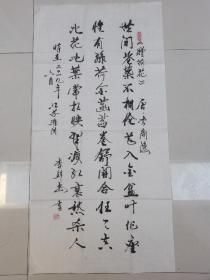 《赠荷花》 唐 李商隐
世间花葉不相伦花入金盆叶作塵
惟有绿荷红菡萏卷舒开合任天真
此花此葉常相映翠减红衰愁杀人
时在二零一九年
六月